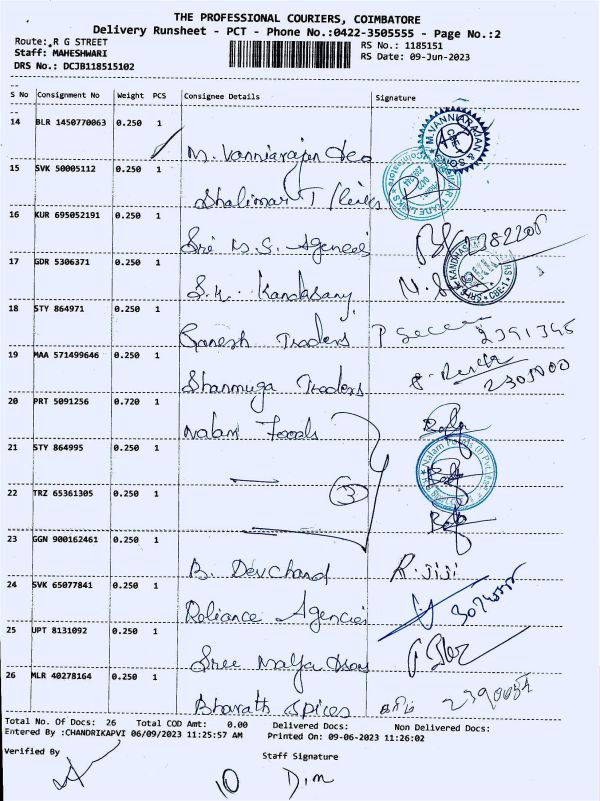 THE PROFESSIONAL COURIERS, COIMBATORE
Delivery Runsheet - PCT - Phone No.:0422-3505555 - Page No.:2
Route:.R G STREET RS No.: 1185151
Staff: MAHESHWARI RS Date: 09-Jun-2023
DRS No.: DCJB118515102
S No Consignment No Weight PCS Consignee Details Signature
14 BLR 1450770063 0.250 1
M. Vanniarajan &co
M.VANNIARAJAN & SONS
15 SVK 50005112 0.250 1
Shalimar T
16 KUR 695052191 0.250 1
Sri M.S. Agencies 2382205
17 GDR 5306371 0.250 1
S.K. Kandasamy
18 STY 864971 0.250 1
Ganesh Traders P 2391345
19 MAA 571499646 0.250 1
Shanmuga Traders
20 PRT 5091256 0.720 1
Nalam Foods
21 STY 864995 0.250 1
22 TRZ 65361305 0.250 1
3
23 GGN 900162461 0.250 1
B. Devchand R. Jiji
24 SVK 65077841 0.250 1
Reliance Agencies
25 UPT 8131092 0.250 1
Sree
26 MLR 40278164 0.250 1
Bharath Spices
Total No. Of Docs: 26 Total COD Amt: 0.00 Delivered Docs: Non Delivered Docs:
Entered By :CHANDRIKAPVI 06/09/2023 11:25:57 AM Printed On: 09-06-2023 11:26:02
Verified By Staff Signature
10